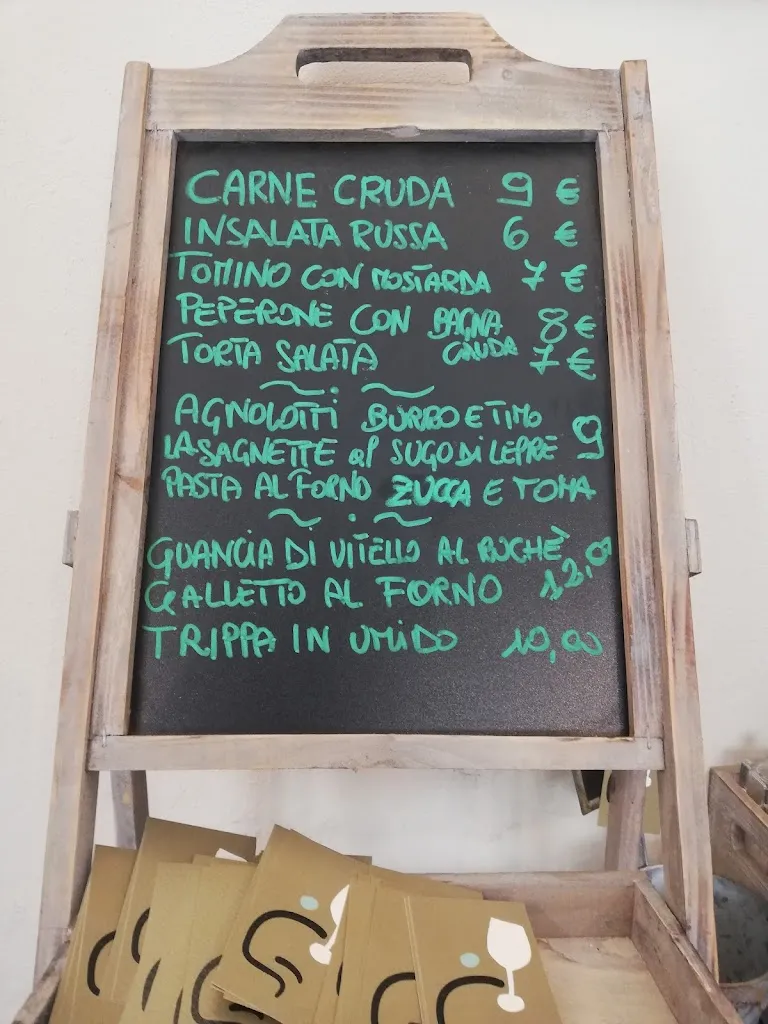 CARNE CRUDA 9 €
INSALATA RUSSA 6 €
TOMINO CON MOSTARDA 7 €
PEPERONE CON BAGNA 8 €
CAUDA
TORTA SALATA 7 €
AGNOLOTTI BURRO E TIMO
LASAGNETTE al SUGO DI LEPRE 9
PASTA AL FORNO ZUCCA E TOMA
GUANCIA DI VITELLO AL RUCHÈ
GALLETTO AL FORNO 12,0
TRIPPA IN UMIDO 10,00